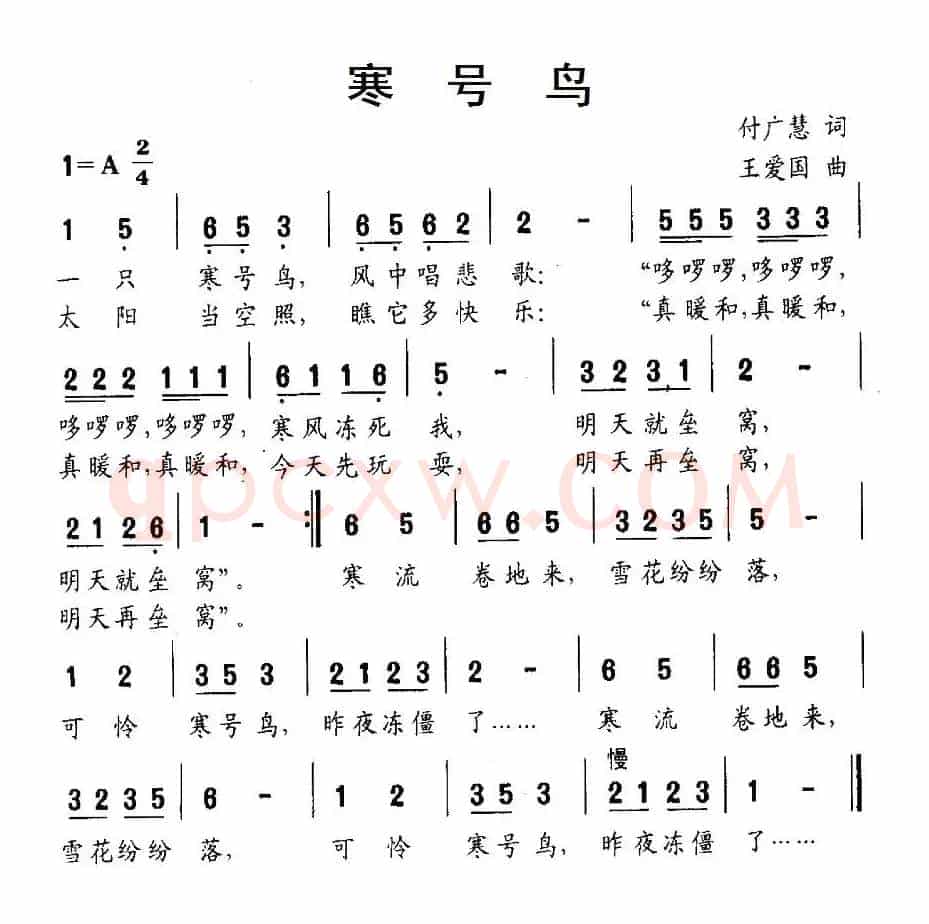 寒号鸟
付广慧 词
1=A 2/4
王爱国 曲
1 5 | 6 5 3 | 6 5 6 2 | 2 - | 5 5 5 3 3 3 |
一只 寒号鸟, 风中唱悲歌: “哆啰啰,哆啰啰,
太阳 当空照, 瞧它多快乐: “真暖和,真暖和,
2 2 2 1 1 1 | 6 1 1 6 | 5 - | 3 2 3 1 | 2 - |
哆啰啰,哆啰啰, 寒风冻死 我, 明天就垒 窝,
真暖和,真暖和, 今天先玩 耍, 明天再垒 窝,
2 1 2 6 | 1 - :‖ 6 5 | 6 6 5 | 3 2 3 5 | 5 - |
明天就垒 窝”。 寒流 卷地来, 雪花纷纷 落,
明天再垒 窝”。
1 2 | 3 5 3 | 2 1 2 3 | 2 - | 6 5 | 6 6 5 |
可怜 寒号鸟, 昨夜冻僵 了…… 寒流 卷地来,
慢
3 2 3 5 | 6 - | 1 2 | 3 5 3 | 2 1 2 3 | 1 - ‖
雪花纷纷 落, 可怜 寒号鸟, 昨夜冻僵 了……
qpcxw.com